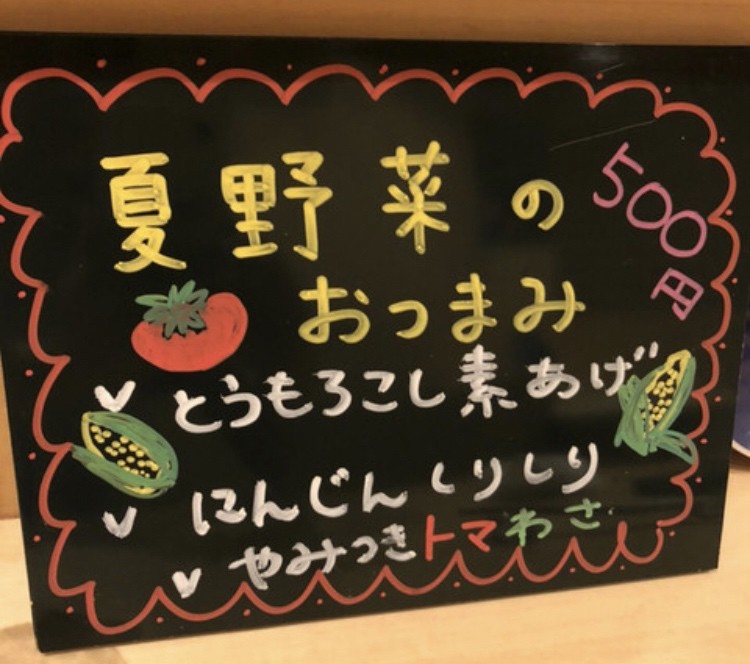 夏野菜の
500円
おつまみ
とうもろこし素あげ
にんじんしりしり
やみつきトマわさ